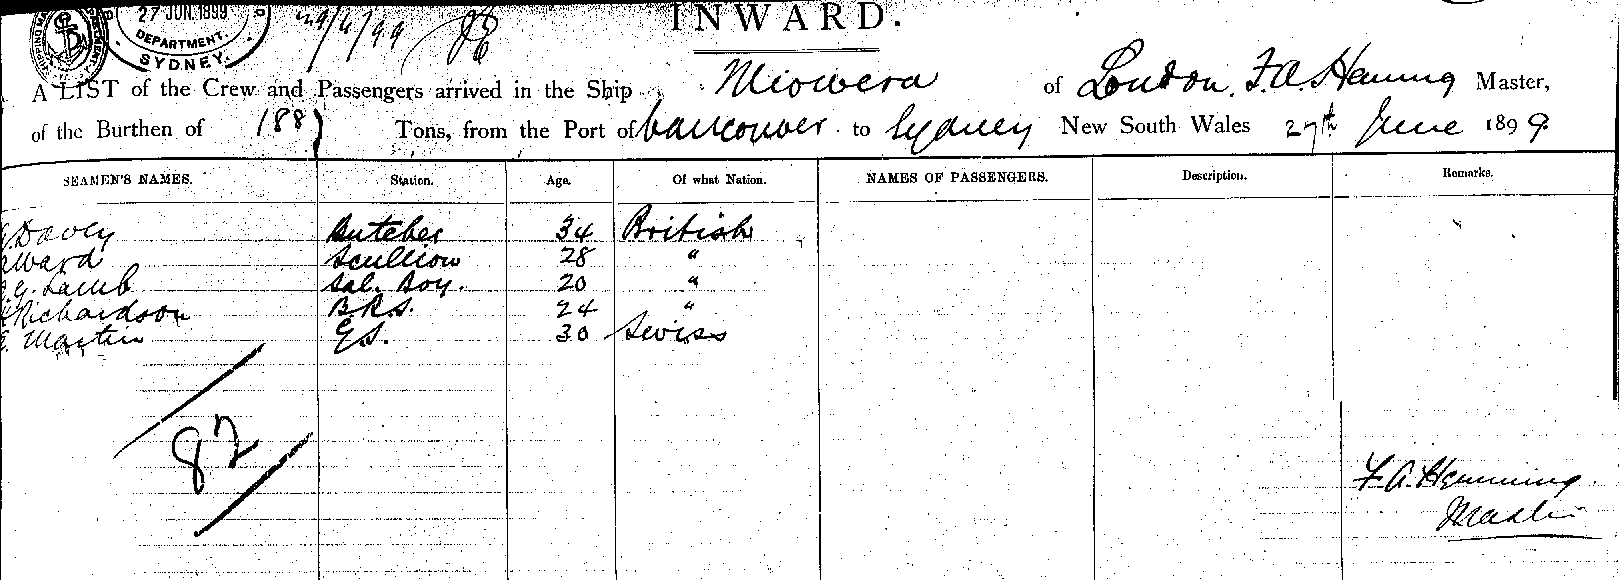 27 JUN. 1899
DEPARTMENT.
SYDNEY.
29/6/99
INWARD.
A LIST of the Crew and Passengers arrived in the Ship Miowera of London, F. A. Hemming Master,
of the Burthen of 1887 Tons, from the Port of Vancouver to Sydney New South Wales 27th June 1899.
SEAMEN'S NAMES. Station. Age. Of what Nation. NAMES OF PASSENGERS. Description. Remarks.
Davey Butcher 34 British
Ward Scullion 28 "
G. Lamb Sal. Boy. 20 "
Richardson B.R.S. 24 "
Martin G.S. 30 Swiss
82
F. A. Hemming
Master